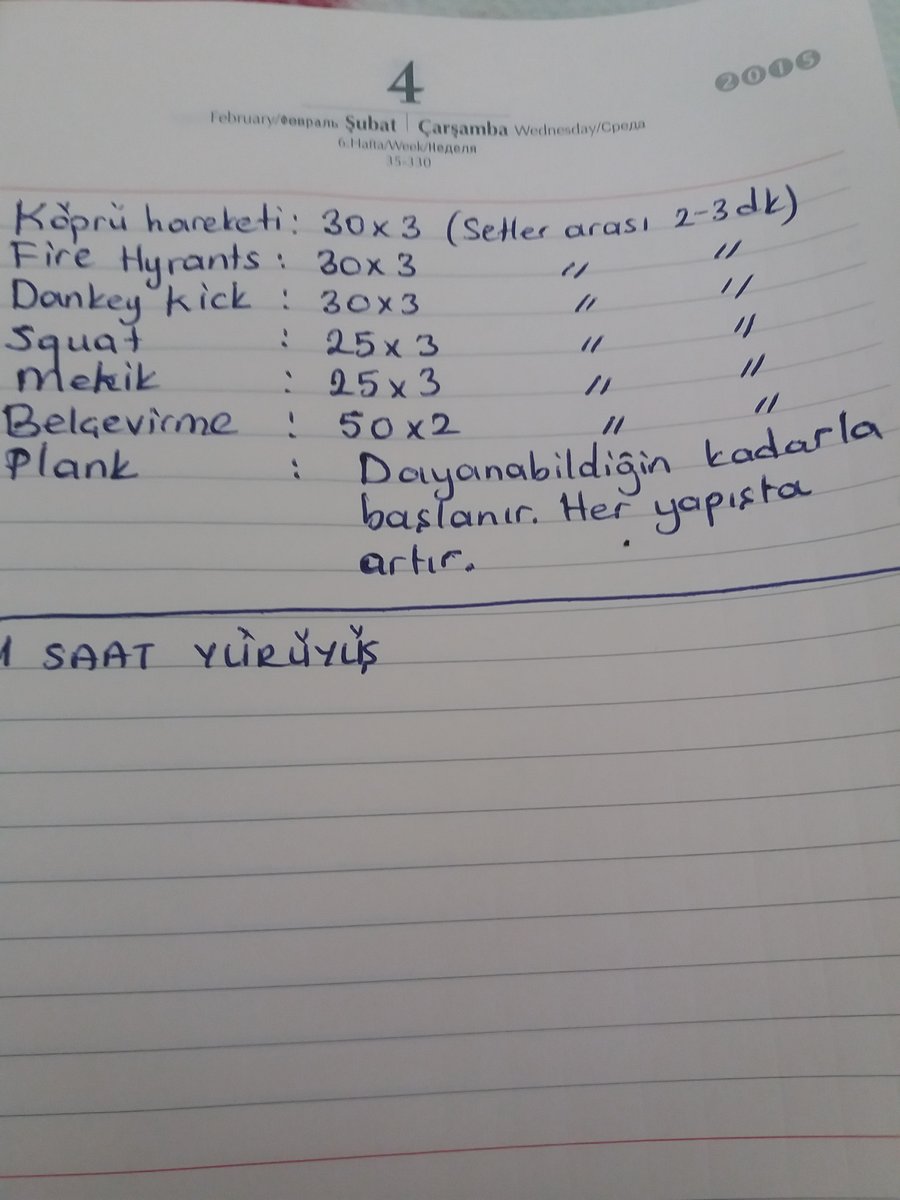 4
2015
February/Февраль Şubat | Çarşamba Wednesday/Среда
6.Hafta/Week/Неделя
35-330
Köprü hareketi: 30x3 (Setler arası 2-3 dk)
Fire Hyrants : 30x3 " "
Dankey kick : 30x3 " "
Squat : 25x3 " "
Mekik : 25x3 " "
Belçevirme : 50x2 " "
Plank : Dayanabildiğin kadarla
başlanır. Her yapışta
artır.
1 SAAT YÜRÜYÜŞ